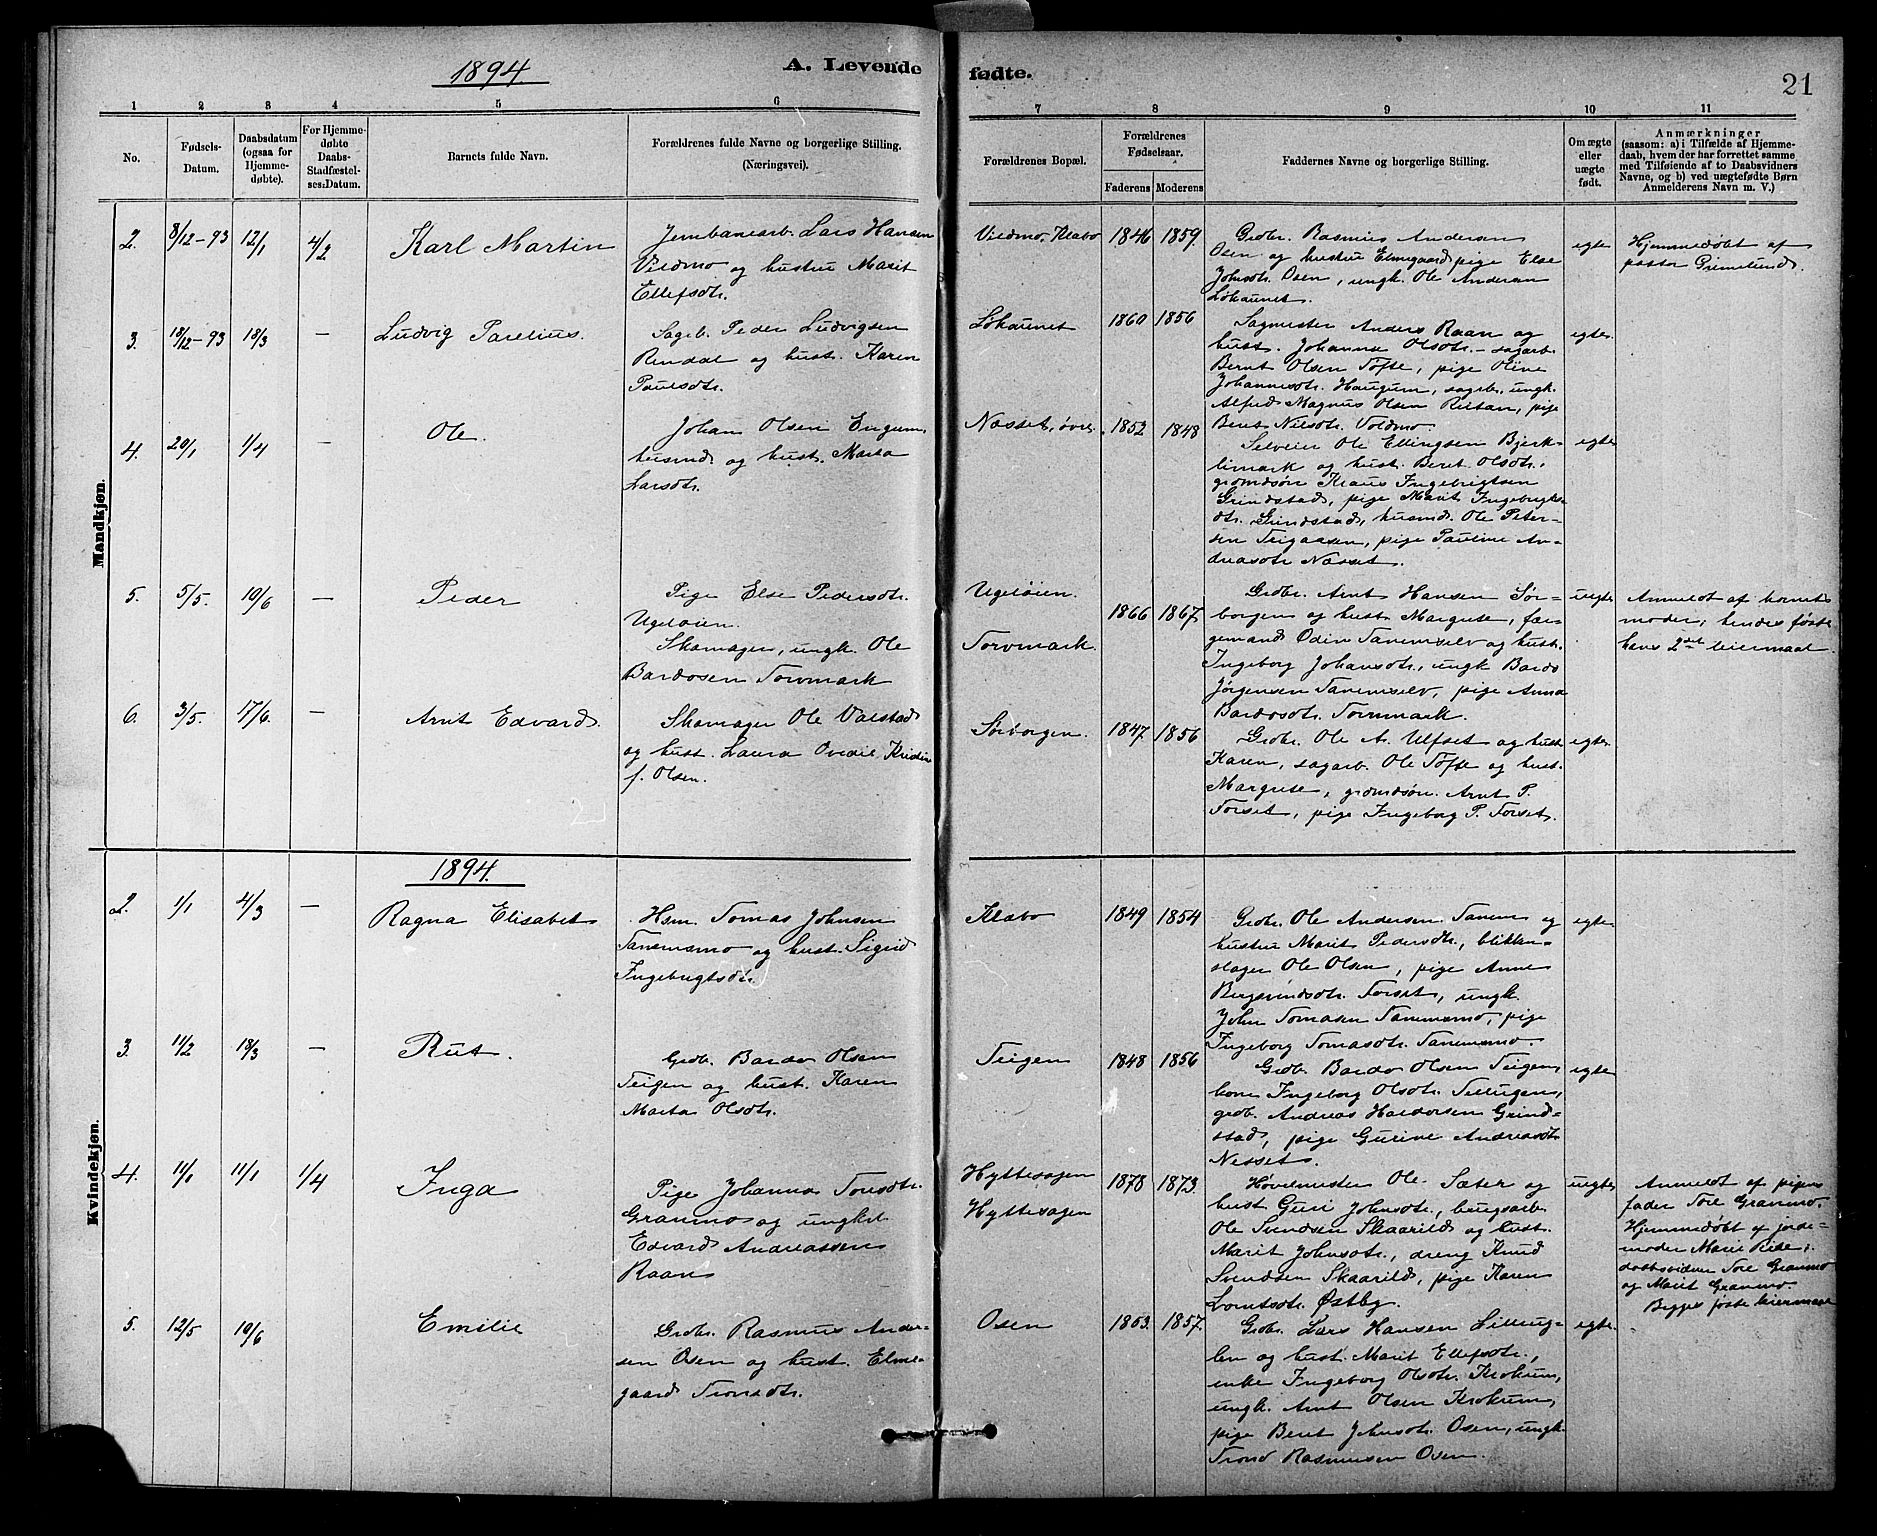 1894.
A. Levende fødte.
21
1 2 3 4 5 6 7 8 9 10 11
No.
Fødsels-
Datum.
Daabsdatum
(ogsaa for
Hjemme-
døbte).
For Hjemme-
døbte
Daabs-
Stadfæstel-
ses-Datum.
Barnets fulde Navn.
Forældrenes fulde Navne og borgerlige Stilling.
(Næringsvei).
Forældrenes Bopæl.
Forældrenes
Fødselsaar.
Faderens Moderens
Faddernes Navne og borgerlige Stilling.
Om ægte
eller
uægte
født.
Anmærkninger
(saasom: a) i Tilfælde af Hjemme-
daab, hvem der har forrettet samme
med Tilføiende af to Daabsvidners
Navne, og b) ved uægtefødte Børn
Anmelderens Navn m. V.)
Mandkjøn.
2. 8/12-93 12/1 4/2 Karl Martin
Jernbanearb. Lars Hansen
Vildmo og hustru Marit
Ellefsdtr.
Vildmo, Klæbo 1846 1859
Grdbr. Rasmus Andersen
Osen og hustru Elmegaard, pige Else
Johnsdtr. Osen, ungk. Ole Andersen
Løhaunet.
egte
Hjemmedøbt af
pastor Grimelund.
3. 18/12-93 18/3 — Ludvig Parelius.
Sagb. Peder Ludvigsen
Rindal og hust. Karen
Paulsdtr.
Løhaunet 1860 1856
Sagmester Anders Raan og
hust. Johanna Olsdtr. - sagarb.
Bernt Olsen Tofte, pige Oline
Johannesdtr. Haugum, sagarb. ungk.
Alfred Magnus Olsen Reitan, pige
Beret Nilsdtr. Voldmo.
egte
4. 20/1 1/4 — Ole.
Johan Olsen Engum,
husmd. og hust. Marta
Larsdtr.
Næsset, øvre. 1852 1848
Selveier Ole Ellingsen Bjerk-
limark og hust. Beret Olsdtr.
grdmdsøn Klaus Ingebrigtsen
Grindstad, pige Marit Ingebrigts-
dtr. Grindstad, husmd. Ole Peter-
sen Teigaasen, pige Pauline An-
dreasdtr Næsset.
egte
5. 5/5. 10/6 — Peder
Pige Else Pedersdtr.
Ugeløien.
Skomager, ungk. Ole
Bardosen Torvmark
Ugeløien.
Torvmark.
1866 1867
Grdbr. Arnt Hansen Sør-
borgen og hust. Margrete, fær-
gemand Odin Tanemselv og hust.
Ingeborg Johansdtr., ungk Bardo
Jørgensen Tanemselv, pige Anna
Bardosdtr. Torvmark.
uegte
Anmeldt af barnets
moder; hendes første
hans 2det leiermaal.
6. 3/5. 17/6. — Arnt Edvard.
Skomager Ole Valstad
og hust. Laura Ovedie Kristine
f. Olsen.
Sørborgen. 1847 1856
Grdbr. Ole A. Ulset og hust
Karen, sagarb. Ole Tofte og hust.
Margrete, grdmdsøn. Arnt P.
Forset, pige Ingeborg P. Forset.
egte
Kvindekjøn.
1894.
2. 1/1 4/3 — Ragna Elisabet
Hsm. Tomas Johnsen
Tanemsmo og hust. Sigrid
Ingebrigtsdtr.
Klæbo 1849 1854
Grdbr. Ole Andersen Tanem og
hustru Marit Pedersdtr., blikken-
slager Ole Olsen, pige Anne
Bergsvendsdtr. Forset, ungk.
John Tomasen Tanemsmo, pige
Ingeborg Tomasdtr. Tanemsmo.
egte
3. 11/2 18/3 — Rut.
Grdb. Bardo Olsen
Teigen og hust. Karen
Marta Olsdtr.
Teigen 1848 1856
Grdb. Bardo Olsen Teigen,
kone Ingeborg Olsdtr. Tellugen,
grdb. Andreas Haldorsen Grind-
stad, pige Gurine Andreasdtr
Nesset.
egte
4. 11/1 11/1 1/4 Inga
Pige Johanna Toresdtr.
Granmo og ungkl.
Edvard Andreassen
Raan
Hyttesagen
Hyttesagen
1878 1873
Høvelmester Ole Sæter og
hust Guri Johnsdtr., brugsarb.
Ole Svendsen Skaarild og hust.
Marit Johnsdtr., dreng Knud
Svendsen Skaarild, pige Karen
Lorntsdtr. Østby.
uegte
Anmeldt af pigens
fader Tore Granmo.
Hjemmedøbt af jorde-
moder Marie Ride;
daabsvidner Tore Granmo
og Marit Granmo.
Begges første leiermaal
5. 12/5 10/6 Emilie
Grdbr. Rasmus Ander-
sen Osen og hust. Elme-
gaard Tronsdtr.
Osen 1863 1857.
Grdbr. Lars Hansen Litlug-
len og hust. Marit Ellefsdtr.,
enke Ingeborg Olsdtr. Krokum,
ungk. Arnt Olsen Krokum,
pige Beret Johnsdtr. Osen, ungk.
Trond Rasmusen Osen.
egte.